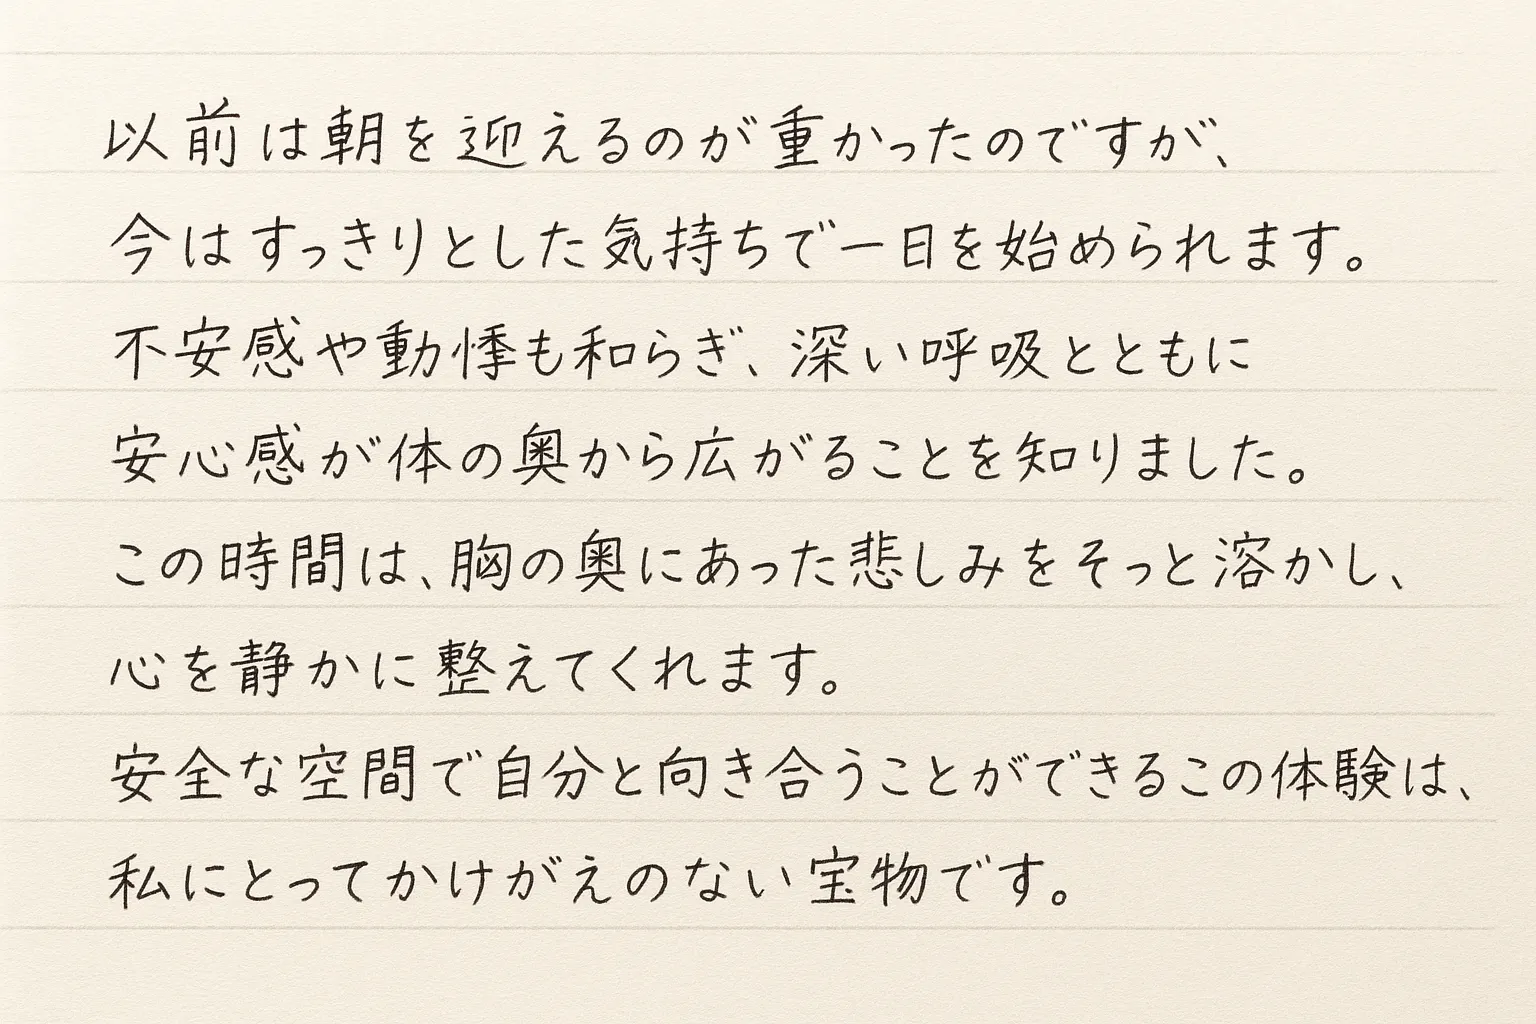 以前は朝を迎えるのが重かったのですが、
今はすっきりとした気持ちで一日を始められます。
不安感や動悸も和らぎ、深い呼吸とともに
安心感が体の奥から広がることを知りました。
この時間は、胸の奥にあった悲しみをそっと溶かし、
心を静かに整えてくれます。
安全な空間で自分と向き合うことができるこの体験は、
私にとってかけがえのない宝物です。